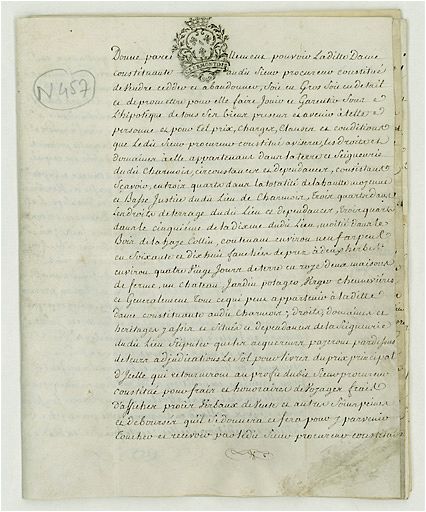 N 457
Donne pareillement pouvoir Laditte Dame
constituante audit Sieur procureur constitué
de Vendre cedder et abandonner, Soit en Gros Soit en detail
et de promettre pour elle faire Jouir et Garentir Sous
L'hipotique de tous Ses biens presens et avenir a telle
personne et pour tel prix, Charges, Clauses et conditions
que Ledit Sieur procureur constitué avisera, les droits et
domaines a elle appartenant dans la terre et Seigneurie
dudit Charmois, circonstances et dependances, consistant
Scavoir, en trois quarts dans la totalité de la haute moyenne
et Basse Justice dudit Lieu de Charmois, trois quarts dans
les droits de terrage dudit Lieu et dependances, trois quarts
dans le cinquieme de la dixme dudit Lieu, moitié dans le
Bois de la haye Collin, contenant environ neuf arpens
en Soixante et dix huit fauchées de prez a deux herbes
environ quatre Vingt Jours de terre en roye deux maisons
de ferme, un Chateau, Jardin potager Verger chenevieres
et Generalement tout ce qui peut appartenir a laditte
dame constituante audit Charmois; droits, domaines et
heritages y assis et Situés et dependances de la Seigneurie
dudit Lieu Stipuler que les acquereurs payeront pardessus
de leurs adjudications Le Sol pour livre du prix principal
d'Icelle qui retournera au profit dudit Sieur procureur
constitué pour frais et honoraires de Voyages frais
d'afficher procès Verbaux de Vente et autres Sour peines
et debourser qu'il Se donnera et fera pour y parvenir
Toucher et recevoir par ledit Sieur procureur constitué